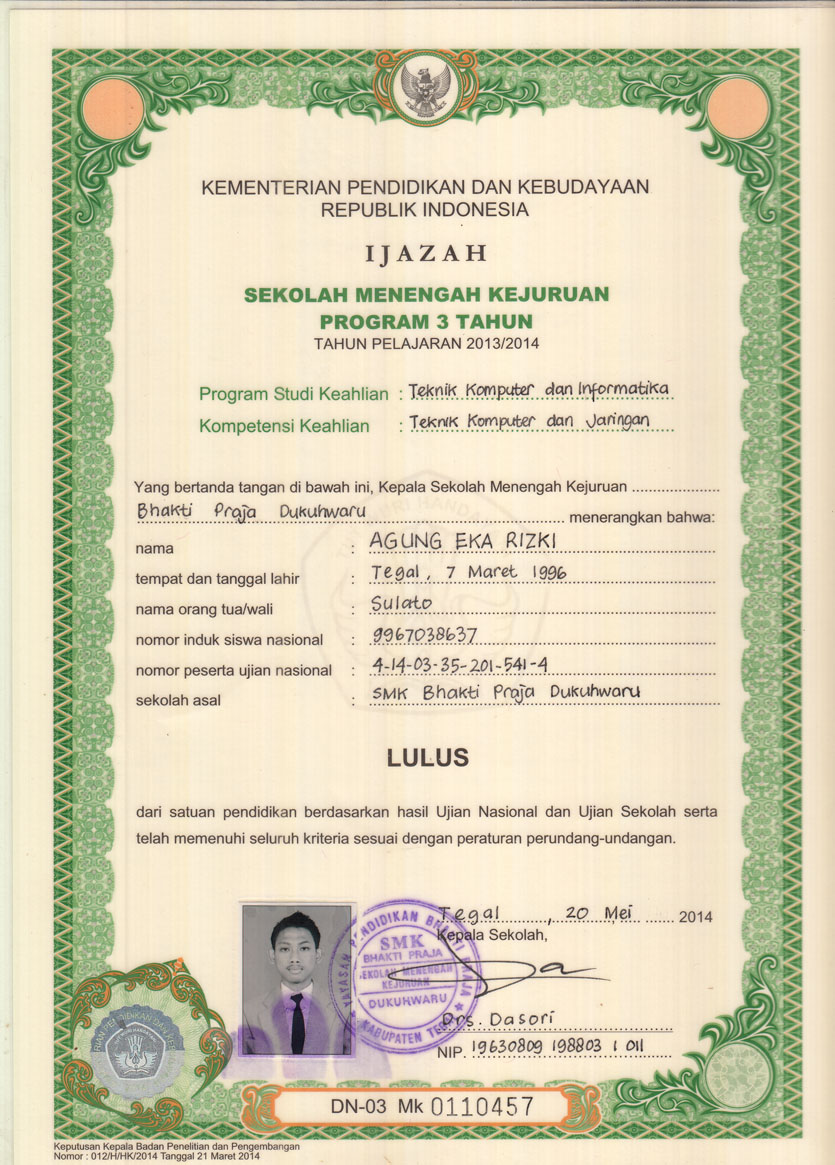 KEMENTERIAN PENDIDIKAN DAN KEBUDAYAAN
REPUBLIK INDONESIA
IJAZAH
SEKOLAH MENENGAH KEJURUAN
PROGRAM 3 TAHUN
TAHUN PELAJARAN 2013/2014
Program Studi Keahlian : Teknik Komputer dan Informatika
Kompetensi Keahlian : Teknik Komputer dan Jaringan
Yang bertanda tangan di bawah ini, Kepala Sekolah Menengah Kejuruan
Bhakti Praja Dukuhwaru menerangkan bahwa:
nama : AGUNG EKA RIZKI
tempat dan tanggal lahir : Tegal, 7 Maret 1996
nama orang tua/wali : Sulato
nomor induk siswa nasional : 9967038637
nomor peserta ujian nasional : 4-14-03-35-201-541-4
sekolah asal : SMK Bhakti Praja Dukuhwaru
LULUS
dari satuan pendidikan berdasarkan hasil Ujian Nasional dan Ujian Sekolah serta
telah memenuhi seluruh kriteria sesuai dengan peraturan perundang-undangan.
Tegal, 20 Mei 2014
Kepala Sekolah,
YAYASAN PENDIDIKAN BHAKTI PRAJA
SMK
BHAKTI PRAJA
SEKOLAH MENENGAH
KEJURUAN
DUKUHWARU
KABUPATEN TEGAL
Drs. Dasori
NIP. 19630809 198803 1 011
DN-03 Mk 0110457
Keputusan Kepala Badan Penelitian dan Pengembangan
Nomor : 012/H/HK/2014 Tanggal 21 Maret 2014